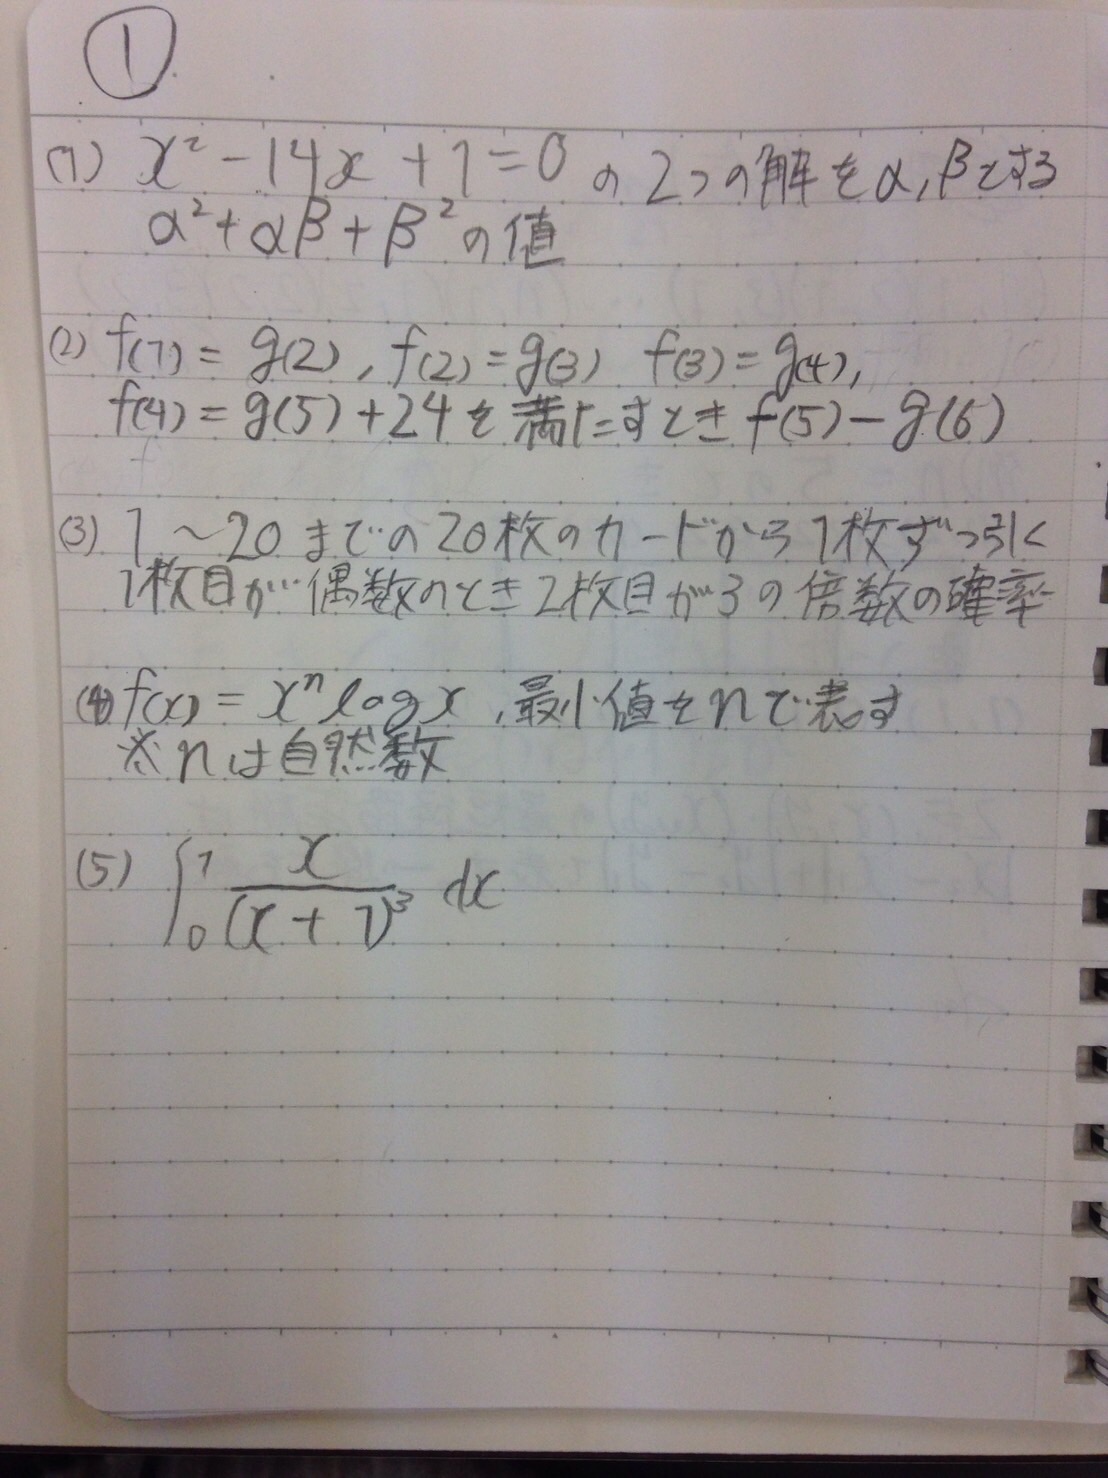 ①
(1) x² - 14x + 1 = 0 の2つの解をα,βとする
α² + αβ + β² の値
(2) f(1) = g(2), f(2) = g(3) f(3) = g(4),
f(4) = g(5) + 24 を満たすとき f(5) - g(6)
(3) 1〜20までの20枚のカードから1枚ずつ引く
1枚目が偶数のとき2枚目が3の倍数の確率
(4) f(x) = xⁿ log x , 最小値をnで表す
※nは自然数
(5) ∫₀¹ x/(x+1)³ dx